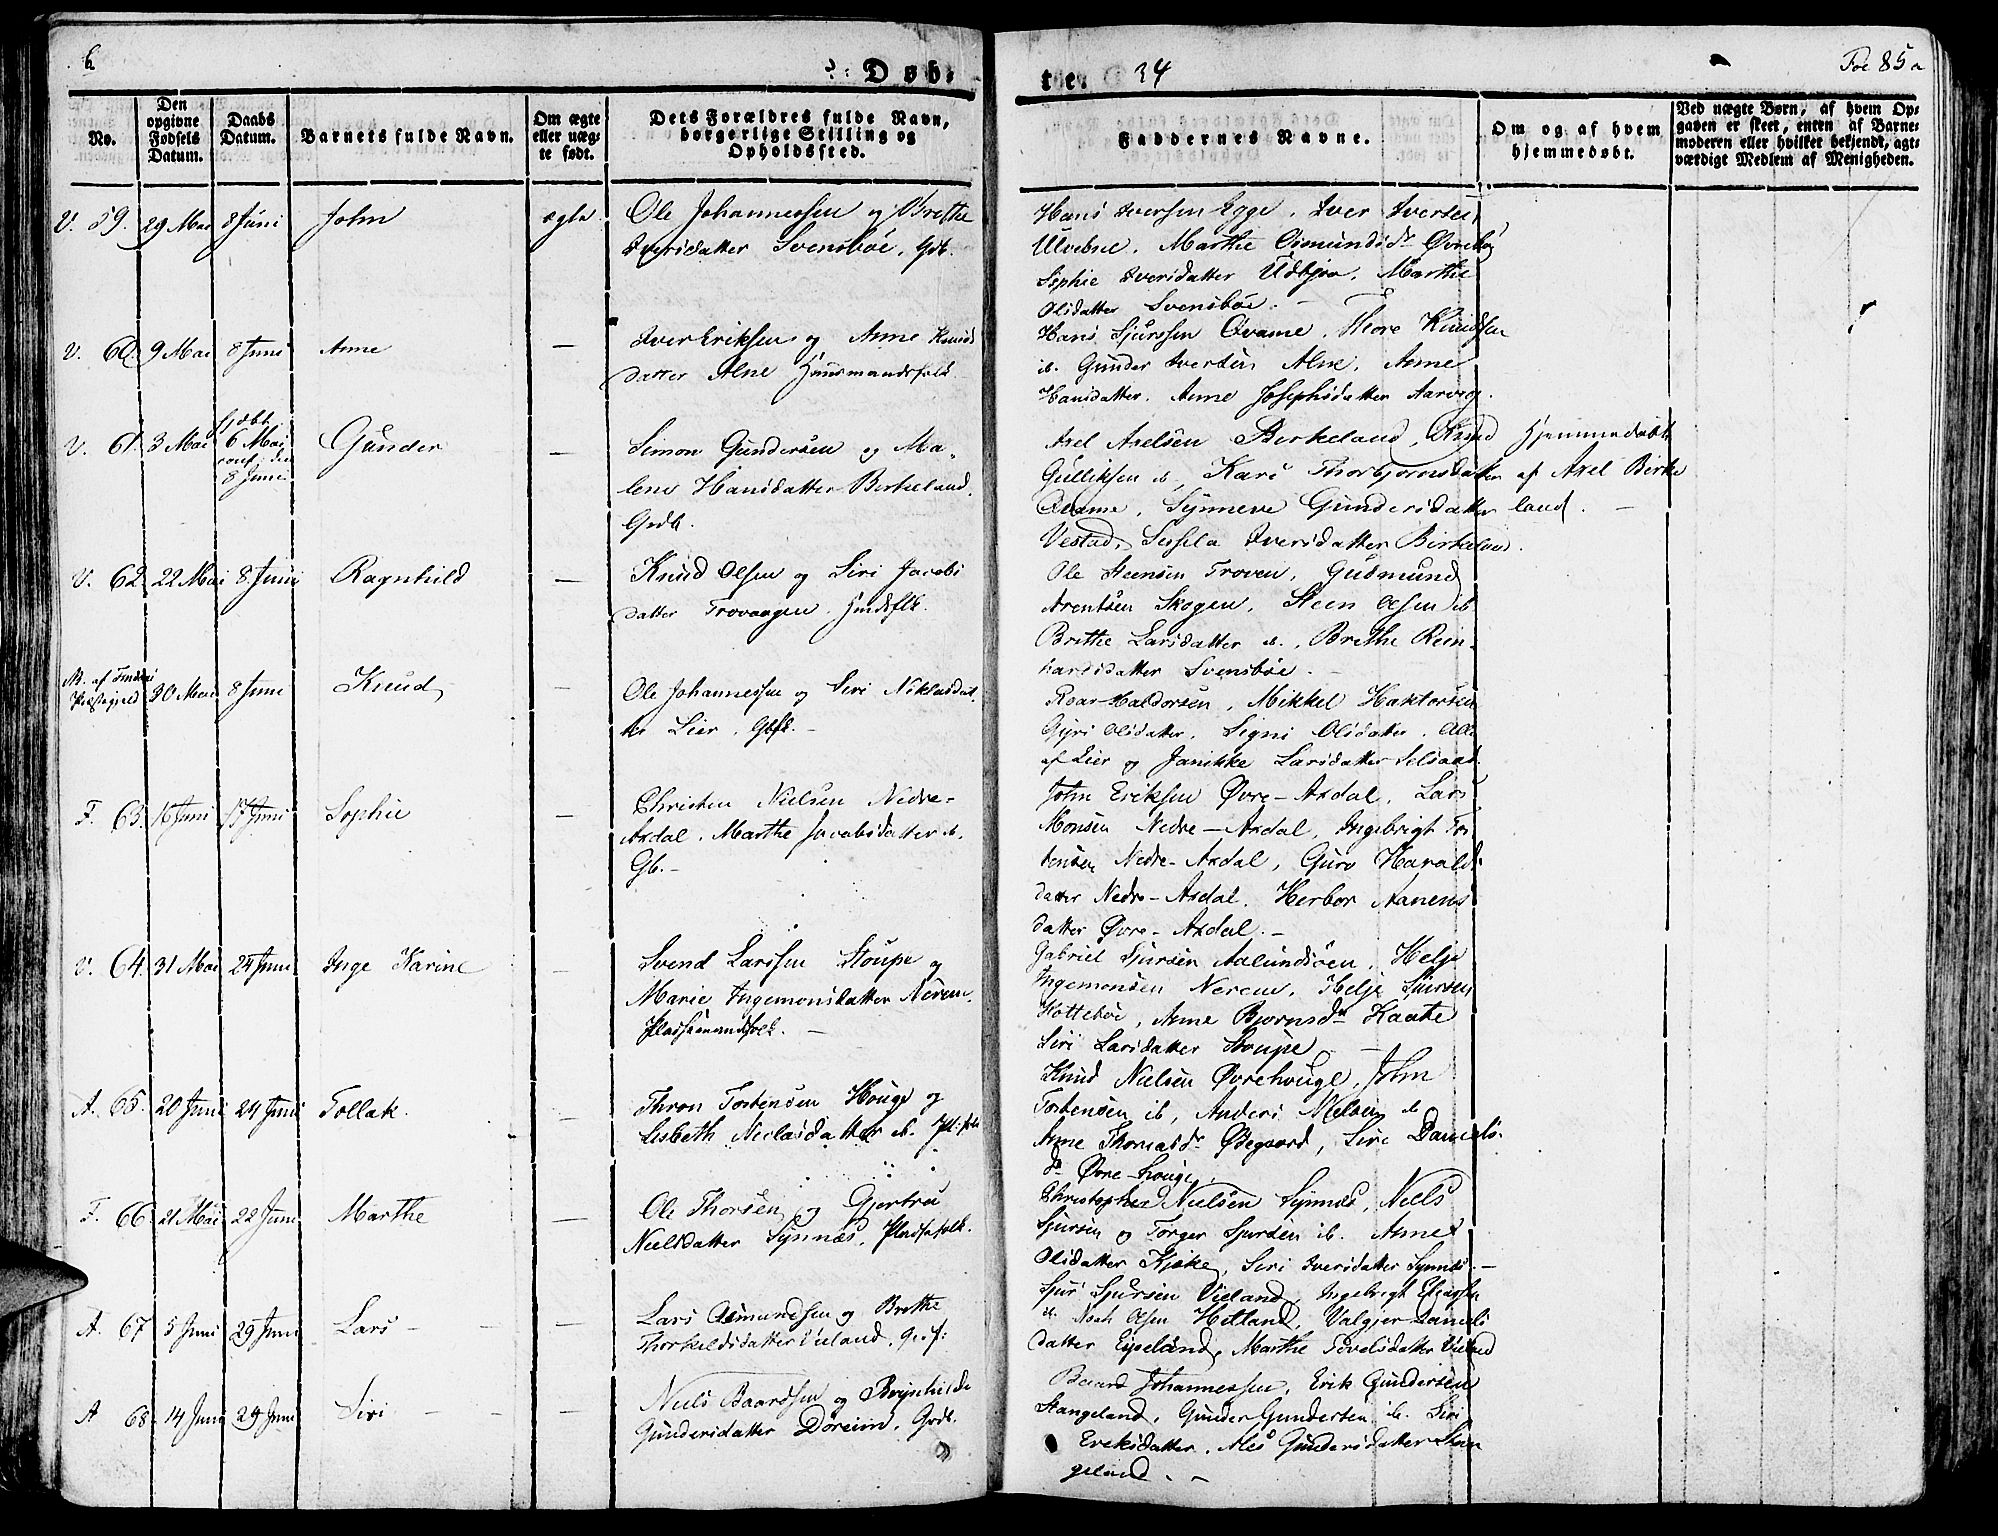 Døb-
te. 34
Foe 85a
No.
Den opgivne Fødsels Datum.
Daabs Datum.
Barnets fulde Navn.
Om ægte eller uæg- te født.
Dets Forældres fulde Navn, borgerlige Stilling og Opholdssted.
Faddernes Navne.
Om og af hvem hjemmedøbt.
Ved uægte Børn, af hvem Op- gaven er skeet, enten af Barne- moderen eller hvilket bekjendt, agt- værdigt Medlem af Menigheden.
V. 59. 29 Mai 8 Juni John ægte Ole Johannessen og Brethe
Iversdatter Svensbøe, Gdb.
Hans Iversen Egge, Iver Iversen
Marthe Osmundsdr
Sophie Iversdatter Marthe
Olsdatter Svensbøe.
V. 60. 9 Mai 8 Juni Anne — Iver Eriksen og Anne Knuds
datter Alne Huusmandsfolk.
Hans Sjurssen Qvame, Thore Knudsen
ib. Gunder Iversen Alne, Anne
Hansdatter. Anne Josephsdatter Aarveg.
V. 61. 3 Mai hjdøbt 6 Mai conf: den 8 Juni Gunder — Simon Gundersen og Ma-
lene Hansdatter Birkeland,
Grdb.
Axel Axelsen Birkeland, Knud
Gulliksen ib, Kari Thorbjørnsdatter
Qvame, Synneve Gundersdatter
Vestad, Sissela Iversdatter Birkeland.
Hjemmedøbt
af Axel Birke
land. —
V. 62. 22 Mai 8 Juni Ragnhild — Knud Olsen og Siri Jacobs
datter Trovaagen, Hmdsflk.
Ole Steensen Troven, Gudmund
Arentsen Skogen, Steen Olsen ib.
Brithe Larsdatter ib., Brethe Rein-
hardsdatter Svensbøe. —
30 Mai 8 Juni Knud — Ole Johannessen og Siri Niklasdat
ter Lier, Gbfk. —
Roar Haldorsen, Mikkel
Gyri Olsdatter, Signi Olsdatter, Alle
af Lier og Janikke Larsdatter
F. 63. 16 Juni 17 Juni Sophie — Christen Nielsen Nedre-
Axdal, Marthe Jacobsdatter ib.
Gb. —
John Eriksen Øvre-Axdal, Lars
Monsen Nedre-Axdal, Ingebrigt Tor
stensen Nedre-Axdal, Guro Harald-
datter Nedre-Axdal, Herbor Aanens
datter Øvre-Axdal. —
V. 64. 31 Mai 24 Juni Inge Karine — Svend Larssen Stoupe og
Marie Ingemonsdatter Nerem.
Pladsemandsfolk. —
Gabriel Sjursen Helje
Ingemonsen Nerem, Helje Sjursen
Anne Bjørnsdr Kaate
Siri Larsdatter Stoupe —
A. 65. 20 Juni 24 Juni Tollak. — Thron Tostensen Houge og
Lisbeth Nielsdatter ib. Pl:folk
Knud Nielsen Øvrehouge, John
Tostensen ib, Anders Nielsen ib
Anne Thomasdr Ødegaard, Siri Daniels-
dr Øvre-houge.
F. 66. 21 Mai 22 Juni Marthe — Ole Thorsen og Gjertru
Nielsdatter Synnæs, Pladsefolk.
Christopher Nielsen Synnæs, Niels
Sjursen og Torger Sjursen ib. Anne
Olsdatter Siri Iversdatter Synnæs. —
A. 67. 5 Juni 29 Juni Lars — Lars Osmundsen og Brethe
Thorkeldsdatter Vieland, G:f:
Sjur Sjursen Vieland, Ingebrigt
ib. Olsen Hetland, Valgjer Daniels
datter Espeland, Marthe
A 68. 14 Juni 29 Juni Siri — Niels Baardsen og Brynhilde
Gundersdatter Døreim, Grdb.
Baard Johannessen, Erik Gundersen
Stangeland, Gunder Gundersen ib. Siri
Eriksdatter, Gundersdatter Stan
geland. —